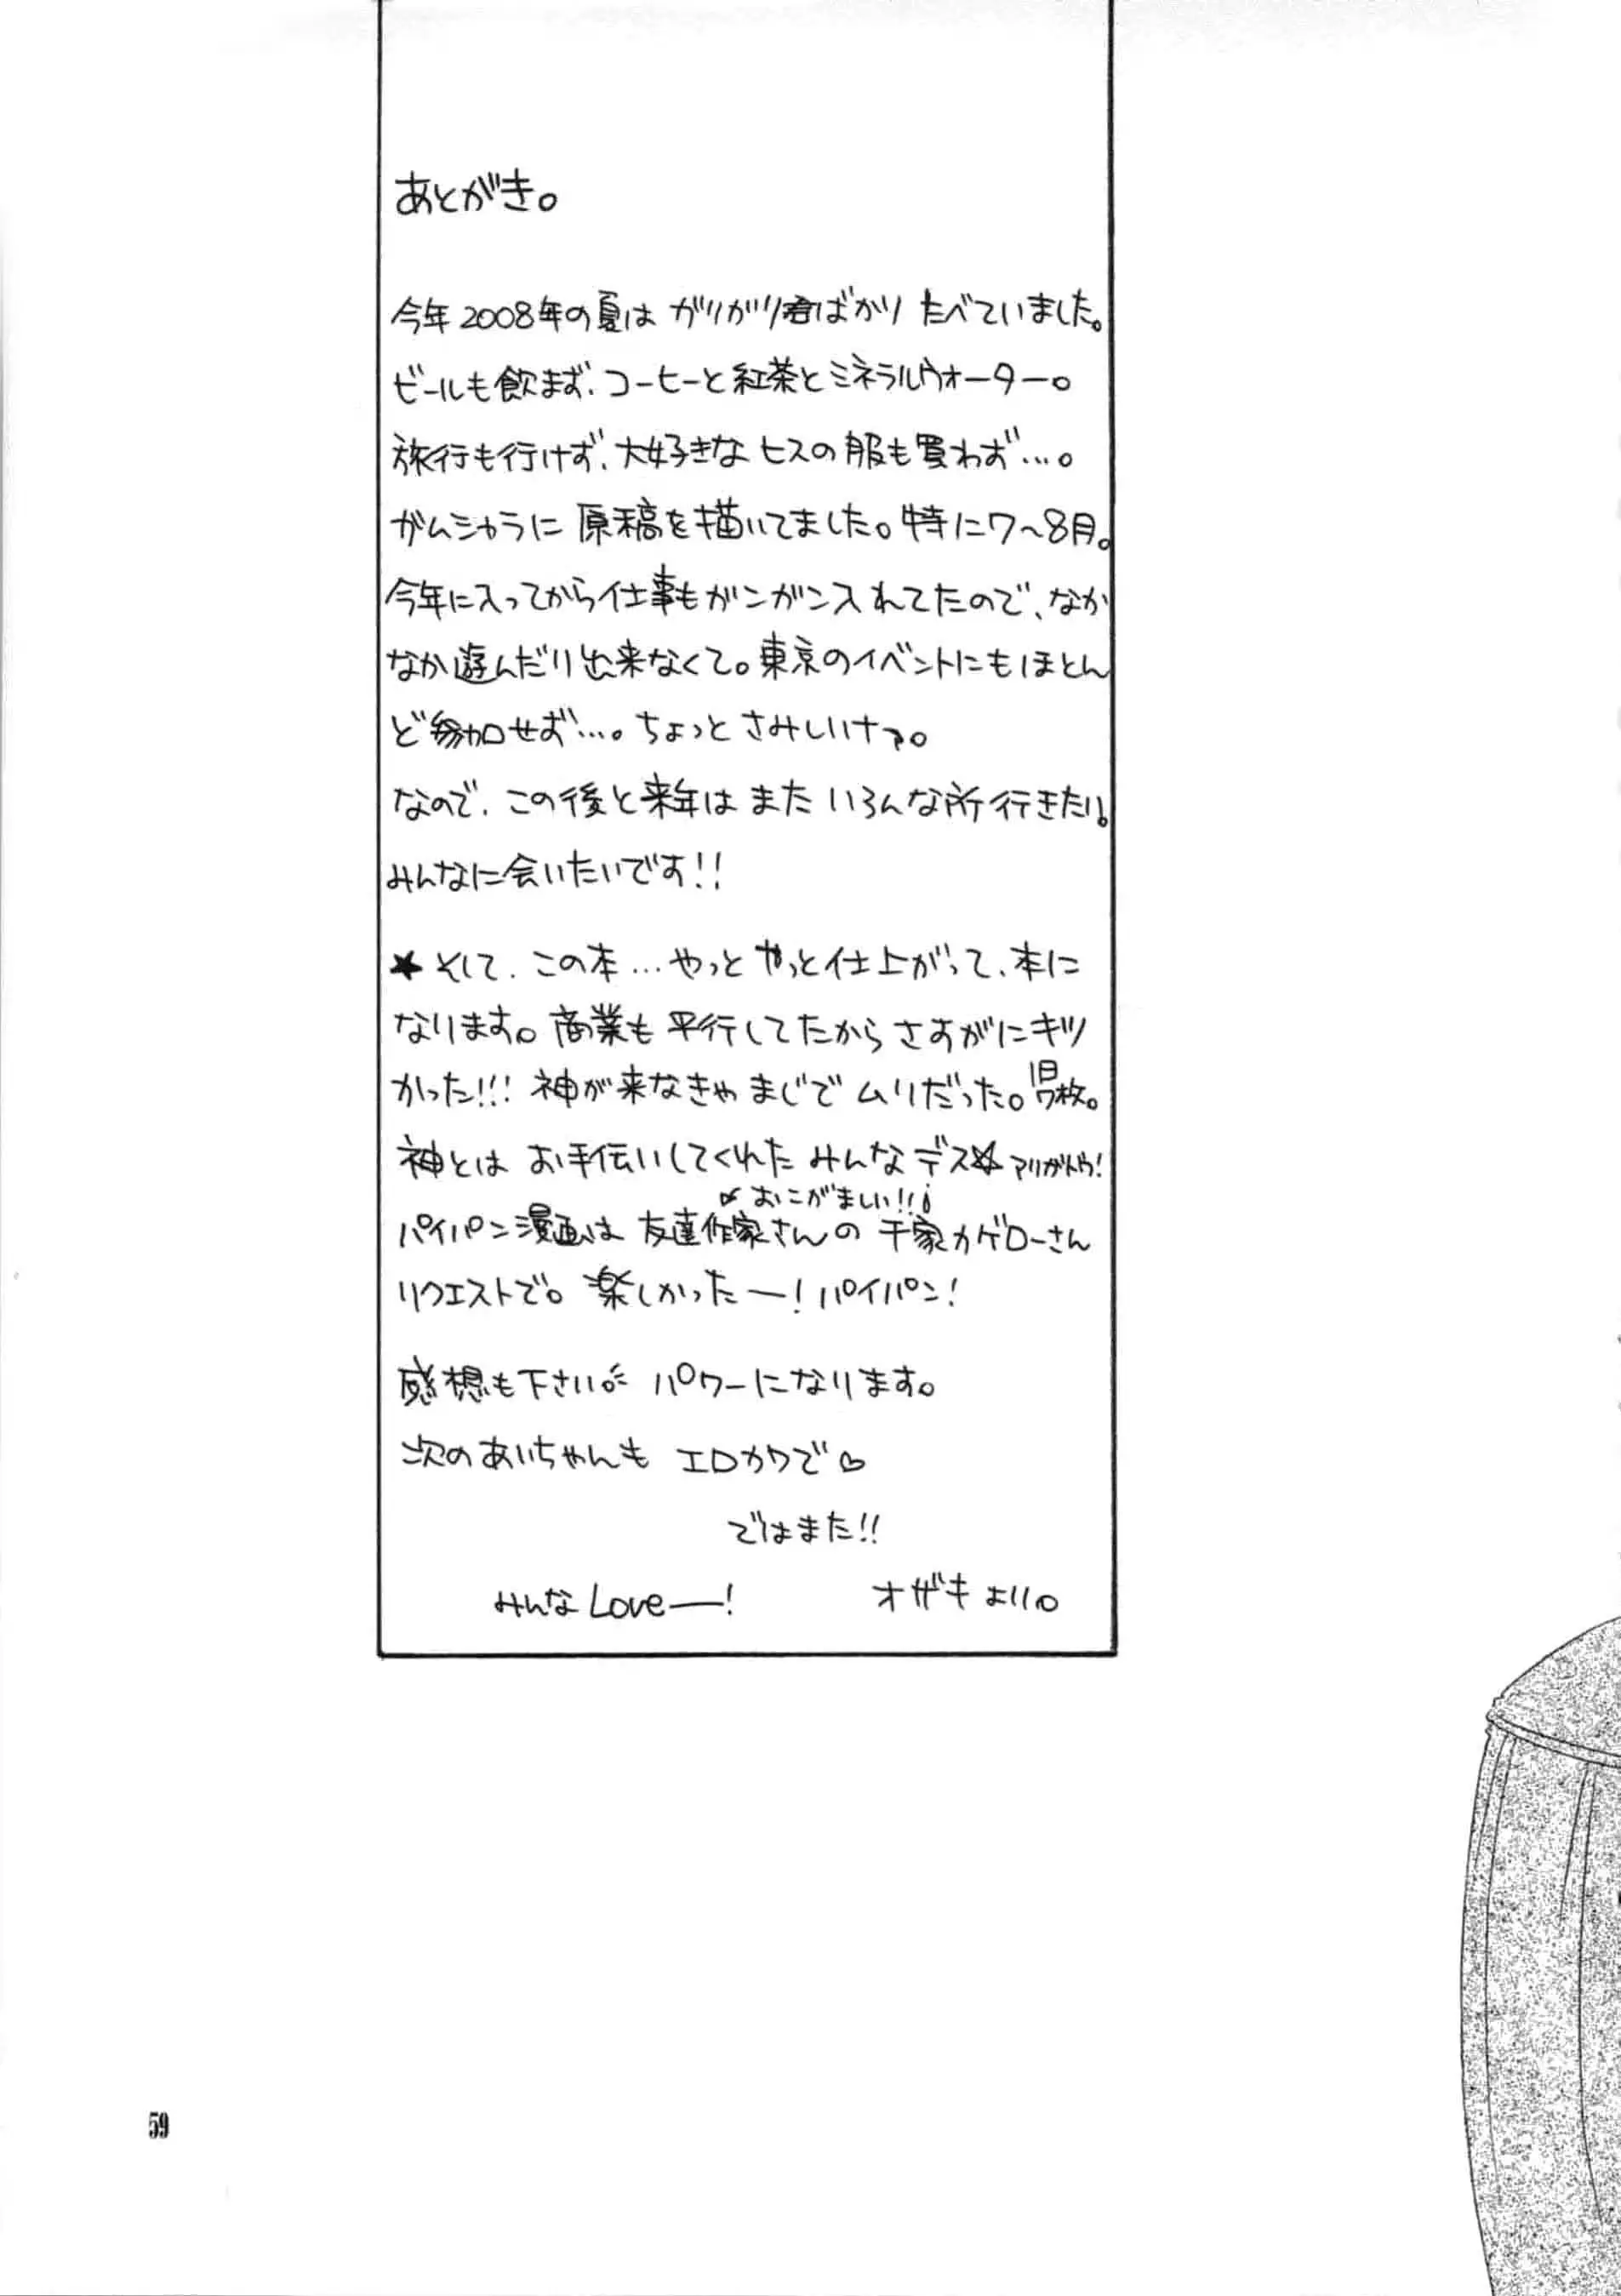 あとがき。
今年2008年の夏は ガリガリ君ばかり たべていました。
ビールも飲まず、コーヒーと紅茶とミネラルウォーター。
旅行も行けず、大好きな ヒスの服も買わず…。
ガムシャラに 原稿を描いてました。特に7〜8月。
今年に入ってから仕事もガンガン入れてたので、なか
なか遊んだり出来なくて。東京のイベントにもほとん
ど参加せず…。ちょっと さみしいナァ。
なので、この後と来年は また いろんな所行きたい。
みんなに会いたいです!!
★そして、この本…やっと やっと仕上がって、本に
なります。商業も平行してたから さすがにキツ
かった!!! 神が来なきゃ まじで ムリだった。1日7枚。
神とは お手伝いしてくれた みんなデス☆ アリガトウ!
おこがましい!!
パイパン漫画は 友達作家さんの 千家カゲローさん
リクエストで。楽しかったー! パイパン!
感想も下さい。パワーになります。
次のあいちゃんも エロカワで♡
ではまた!!
みんなLoveー! オザキより。
59